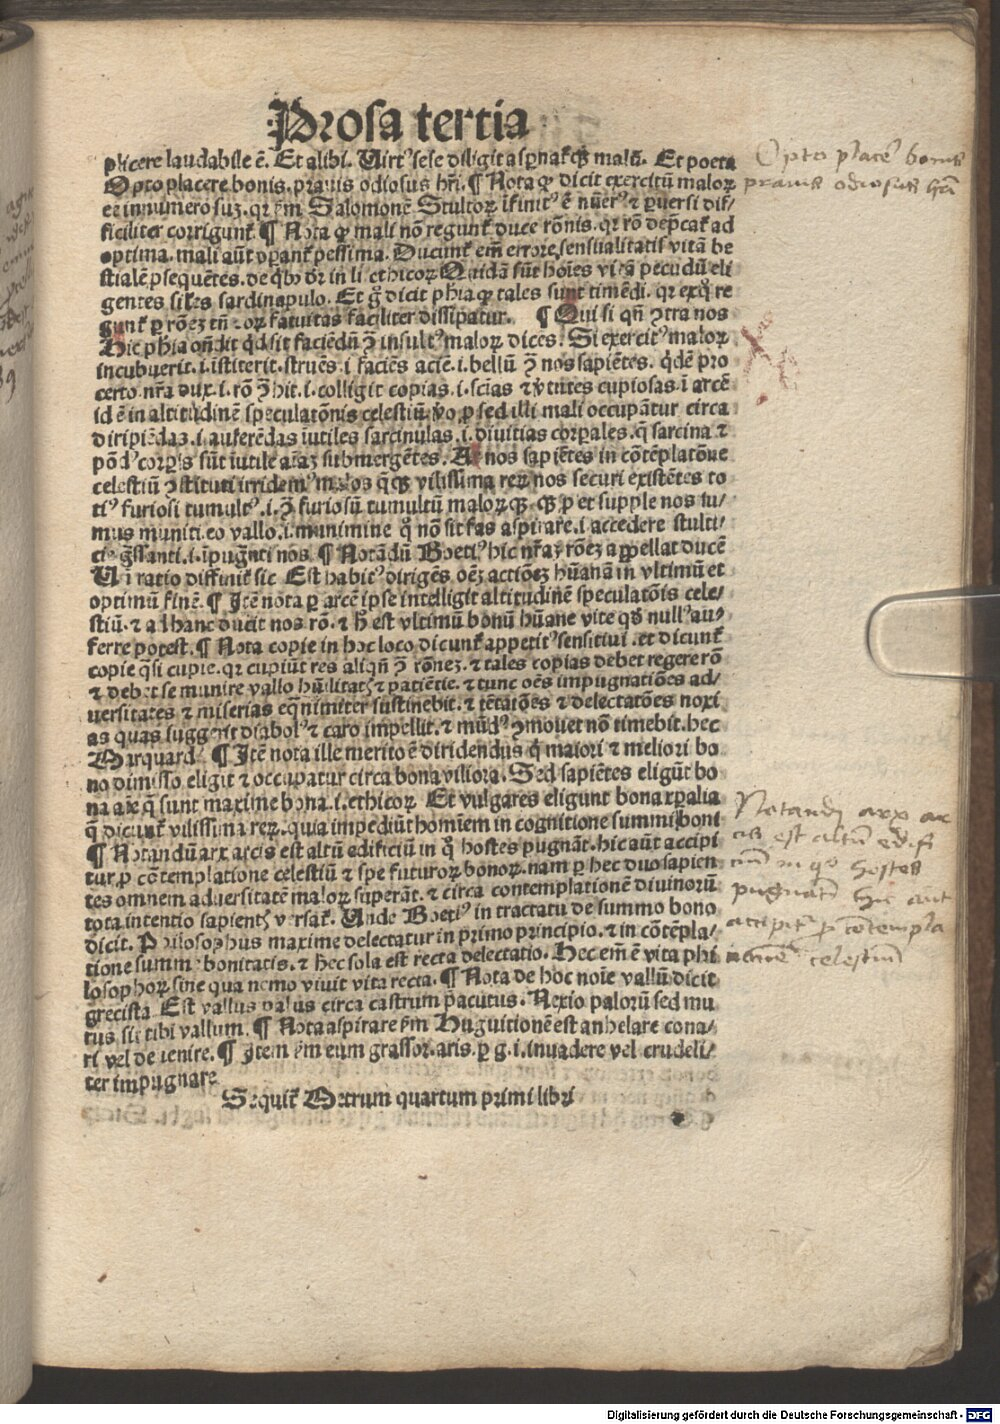 Prosa tertia
plicere laudabile ē. Et alibi. Uirtꝰ sese diligit aspnat᷑ qꝫ malū. Et poeta
Opto placere bonis. prauis odiosus hr̄i. ¶ Nota ꝙ dicit exercitū maloꝝ
eē innumerosuꝫ. qꝛ ẜm Salomonē Stultoꝝ ifinitꝰ ē nūerꝰ ⁊ ꝑuersi dif⸗
ficiliter corrigunt᷑ ¶ Nota ꝙ mali nō regunt᷑ duce rōnis. qꝛ rō dep̄cat᷑ ad
optima. mali aūt
Ducunt᷑ em̄ errore, sensualitatis vitā be
stialē ꝓsequētes. de qͥbꝰ dr̄ in li ethicoꝝ Quidā sūt hoīes vitā pecudū eli
gentes siłes sardinapulo. Et gͦ dicit phia ꝙ tales sunt timēdi. qꝛ
re
gunt᷑ ꝑ rōeꝫ tn̄
fatuitas faciliter dissipatur. ¶ Qui si qn̄ ↄtra nos
Hic phia on̄dit qͥd sit faciēdū ꝯ̄ insultꝰ maloꝝ dicēs. Si exercitꝰ maloꝝ
incubuerit. i. istiterit. struēs. i faciēs aciē. i. bellū ꝯ̄ nos sapiētes. qͥdē pro
certo nr̄a dux. i. rō ↄ̄hit. i. colligit copias. i. sciās ⁊ v̄tutes cupiosas. ī arcē
id ē in altitudinē speculatōnis celestiū. v̄o ꝓ sed illi mali occupātur circa
diripiēdas. i. auferēdas iutiles sarcinulas. i. diuitias corꝑales. q̄ sarcina ⁊
pōdꝰ corꝑis sūt iutile aīaꝫ submergētes. At nos sapiētes in cōtēplatōne
celestiū ↄstituti irridemꝰ malos
vilissima reꝝ nos securi existētes to
tiꝰ furiosi tumultꝰ. i. ꝯ̄ furiosū tumultū maloꝝ
et supple nos su⸗
mus muniti eo vallo. i. munimine qͦ nō sit fas aspirare. i accedere stulti⸗
cie gͣssanti. i. īpugnāti nos. ¶ Notādū Boetiꝰ hic nr̄aꝫ rōeꝫ appellat ducē
Uñ ratio diffinit᷑ sic Est habitꝰ dirigēs oēꝫ actiōeꝫ hūanā in vltimū et
optimū finē. ¶ Itē nota ꝑ arcē ipse intelligit altitudinē speculatōis cele⸗
stiū. ⁊ ad hanc ducit nos rō. ⁊ h̄ est vltimū bonū hūane vite qd̓ nullꝰ au⸗
ferre potest. ¶ Nota copie in hoc loco dicunt᷑ appetitꝰ sensitiui. et dicunt᷑
copie qͣsi cupie. qꝛ cupiūt res aliqn̄ ꝯ̄ rōneꝫ. ⁊ tales copias debet regere rō
⁊ debet se munire vallo hūilitatꝭ ⁊ patiētie. ⁊ tunc oēs impugnatiōes ad⸗
uersitates ⁊ miserias eqͣnimiter sustinebit. ⁊ tētatōes ⁊ delectatōes noxi
as quas suggerit diabolꝰ ⁊ caro impellit. ⁊ mūdꝰ ↄmouet nō timebit. hec
Marquardꝰ ¶ Itē nota ille merito ē diridendus qͥ maiori ⁊ meliori bo
no dimisso eligit ⁊ occupatur circa bona viliora. Sed sapiētes eligūt bo
na aīe q̄ sunt maxime bona. i. ethicoꝝ Et vulgares eligunt bona
q̄ dicunt᷑ vilissima reꝝ. quia impediūt homīem in cognitione summi boni
¶ Notandū arx arcis est altū edificiū in qͦ hostes pugnāt. hic aūt accipi
tur ꝓ cōtemplatione celestiū ⁊ spe futuroꝝ bonoꝝ. nam ꝑ hec duo sapien
tes omnem aduersitatē maloꝝ suꝑāt. ⁊ circa contemplationē diuinorū
tota intentio sapientꝭ versat᷑. Unde Boetiꝰ in tractatu de summo bono
dicit. Philosophus maxime delectatur in primo principio. ⁊ in cōtēpla⸗
tione summe bonitatis. ⁊ hec sola est recta delectatio. Hec em̄ ē vita phi
losophoꝝ sine qua nemo viuit vita recta. ¶ Nota de hoc noīe vallū dicit
grecista Est vallus palus circa castrum p̄acutus. Nexio palorū sed mu
rus sit tibi vallum. ¶ Nota aspirare ẜm Huguitionē est anhelare cona⸗
ri vel deuenire. ¶ Item ẜm eum grassor. aris. ꝑ g. i. inuadere vel crudeli⸗
ter impugnare
Sequit᷑ Metrum quartum primi libri
Opto placē bonis
prauis odiosus
Notandū arx ar
cis est altū edifi
ciū in qͦ hostes
pugnāt hic aūt
accipitr̄ ꝓ cōtempla
tionē celestium
Digitalisierung gefördert durch die Deutsche Forschungsgemeinschaft - DFG